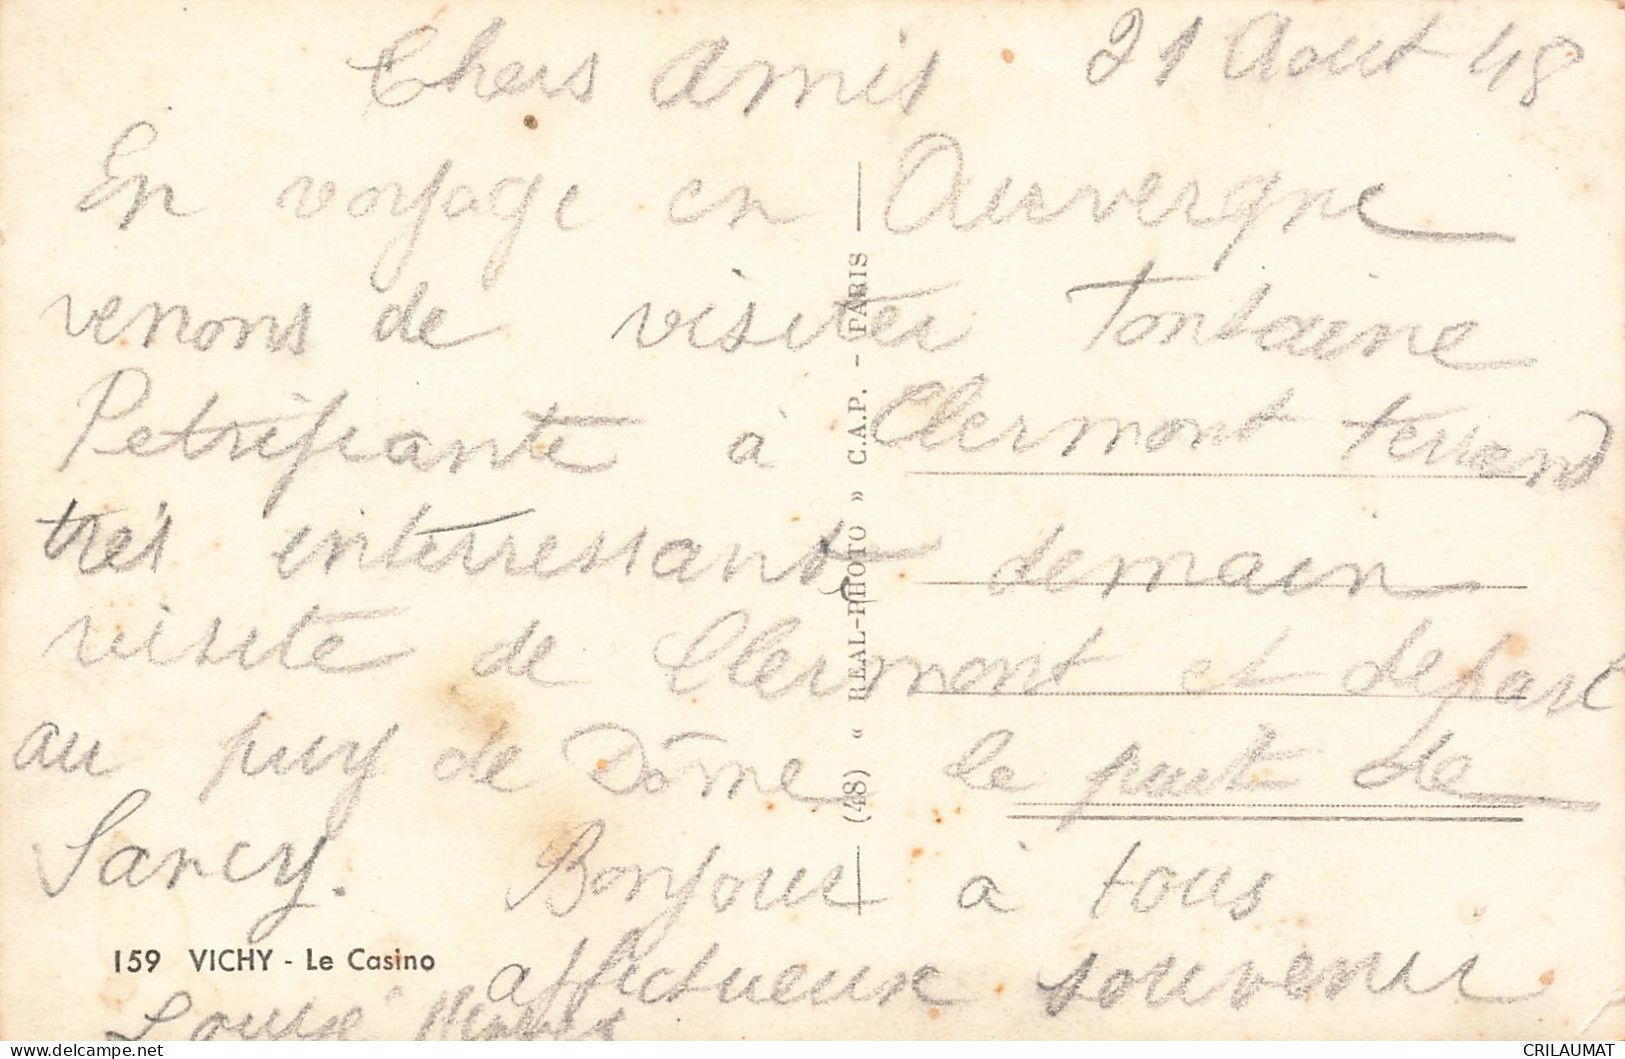 Chers Amis 21 Aout 48
En voyage en Auvergne
venons de visiter Fontaine
Petrifiante à Clermont ferrand
très interressant demain
visite de Clermont et depart
au puy de Dôme le puit de
Sancy. Bonjour à tous
affectueux souvenir
Louise
159 VICHY - Le Casino
(48) « REAL-PHOTO » C.A.P. - PARIS
delcampe.net
CRILAUMAT